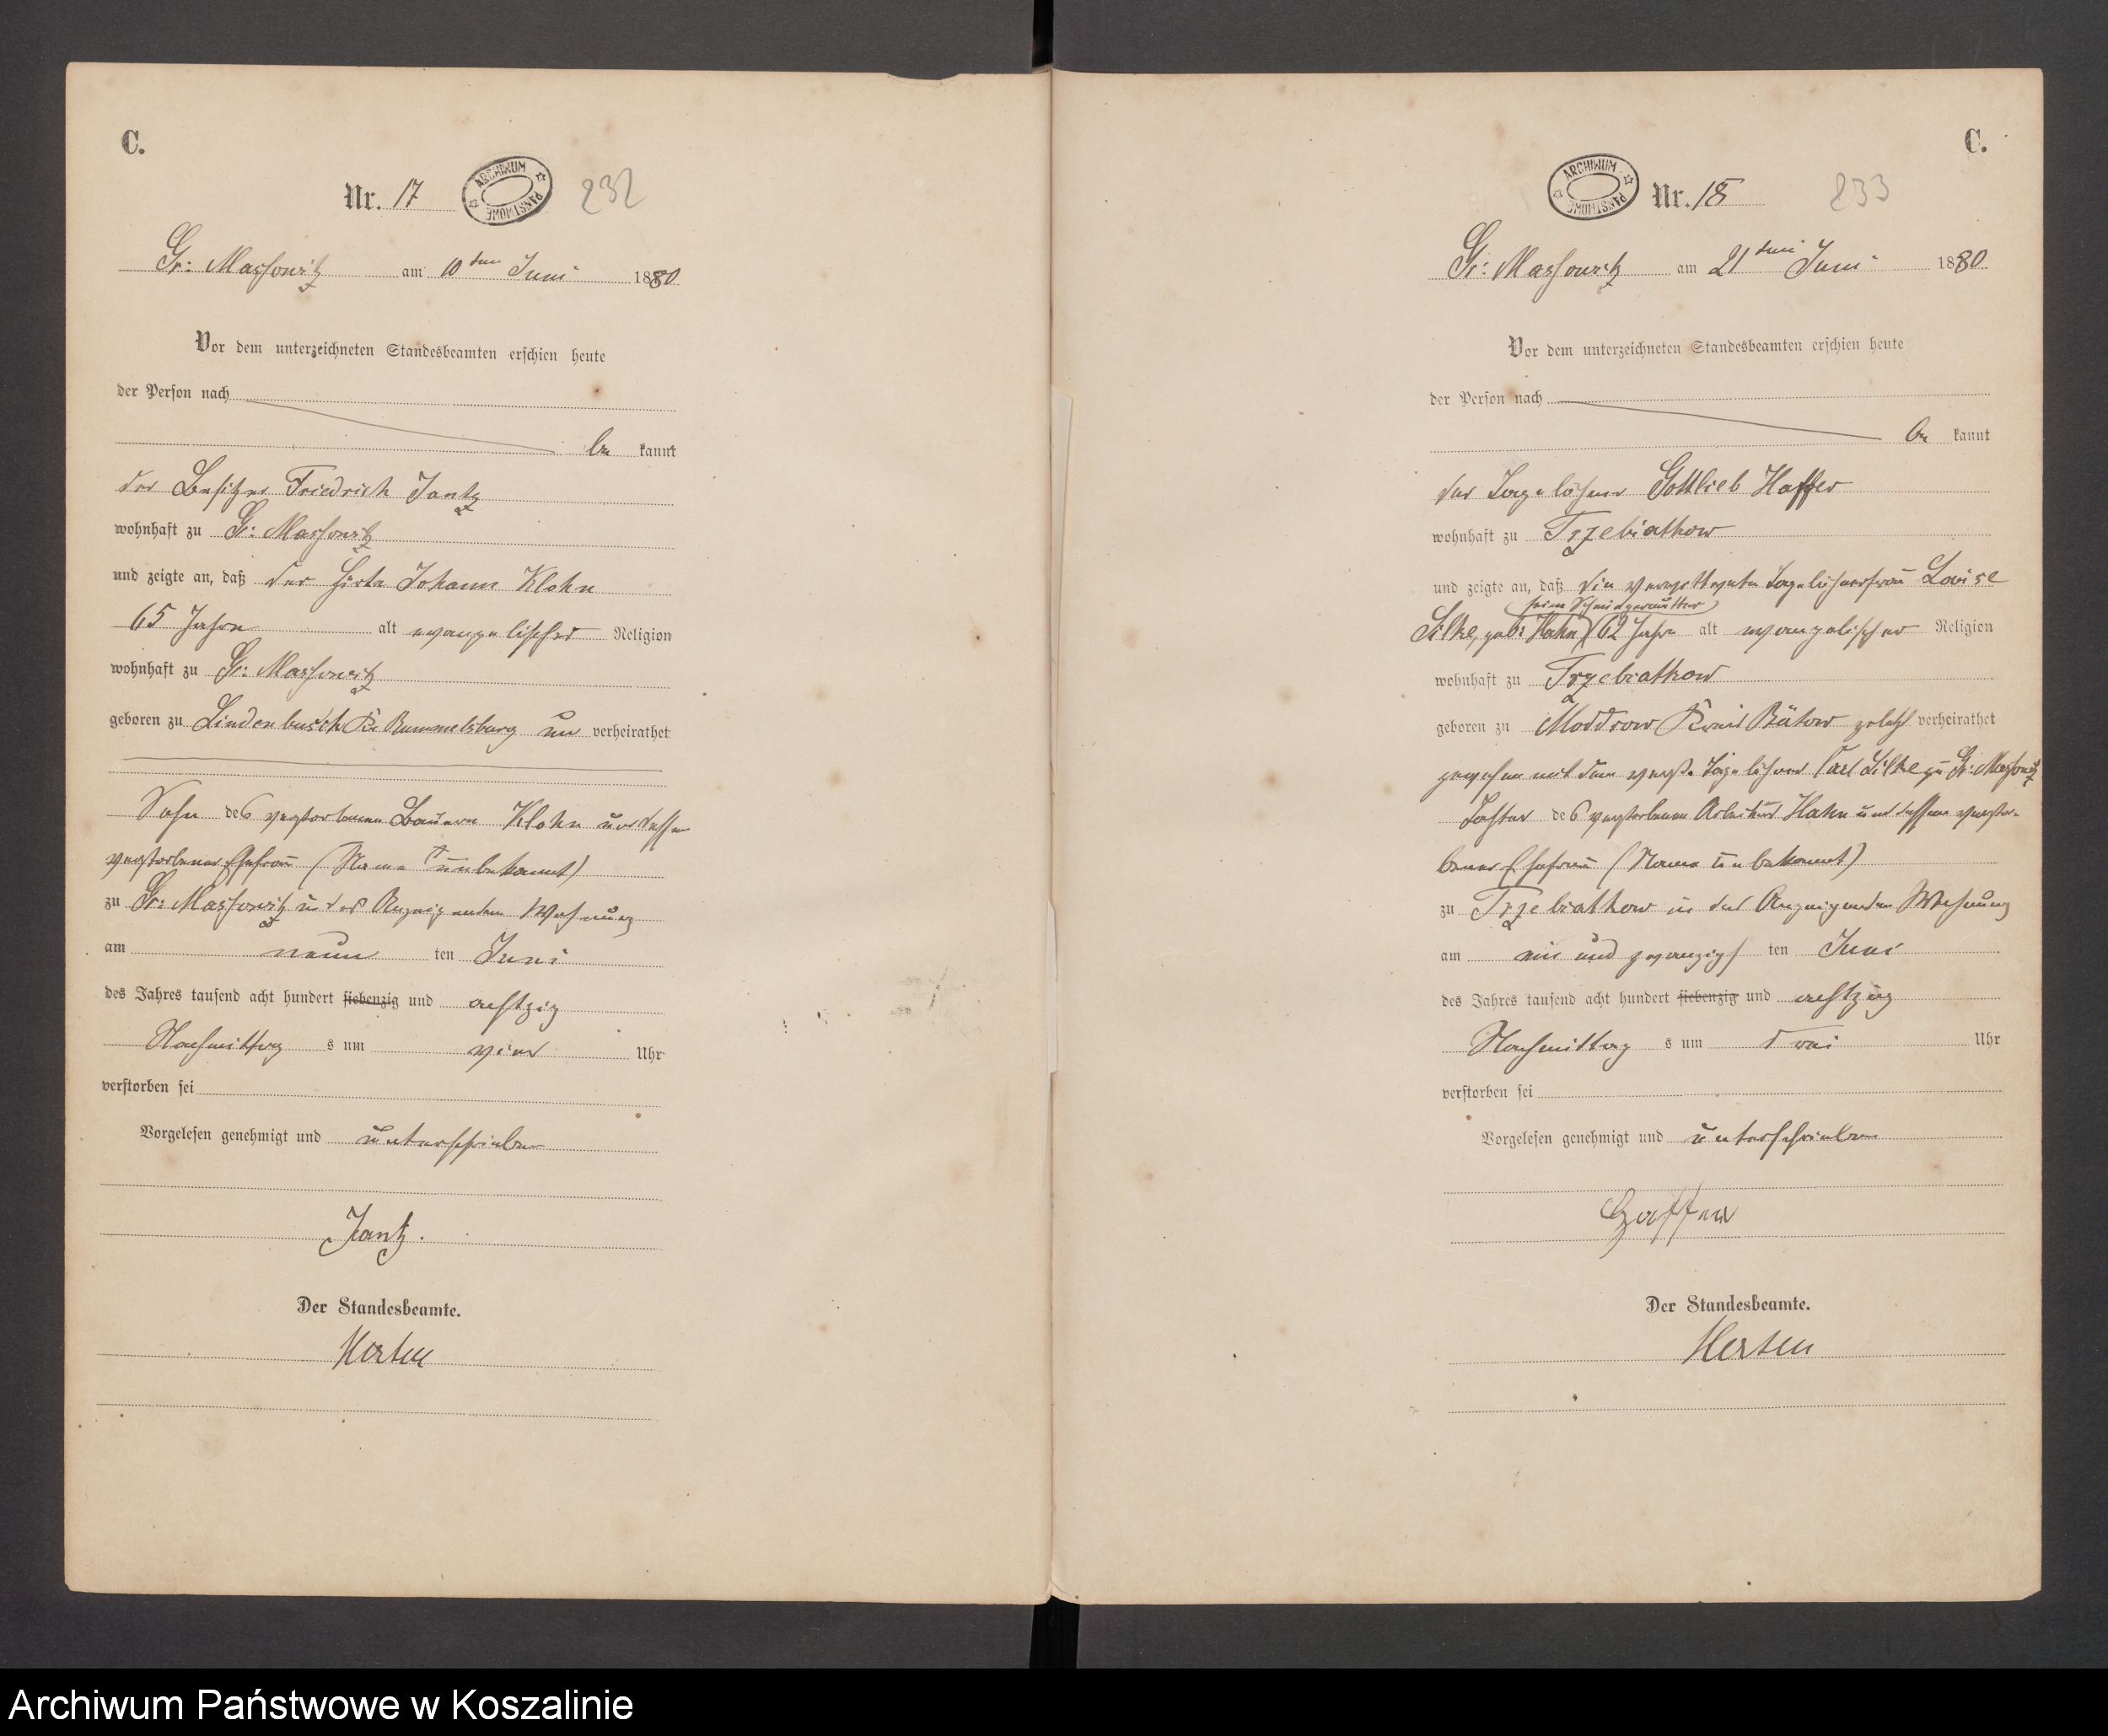 C.
Nr. 17
ARCHIWUM PAŃSTWOWE
232
Gr: Massowitz am 10ten Juni 1880
Vor dem unterzeichneten Standesbeamten erschien heute
der Person nach
be kannt
der Besitzer Friedrich Jantz
wohnhaft zu Gr: Massowitz
und zeigte an, daß der Hirte Johann Klohn
65 Jahre alt evangelischer Religion
wohnhaft zu Gr: Massowitz
geboren zu Lindenbusch Kr. Rummelsburg un verheirathet
Sohn des verstorbenen Bauern Klohn und dessen
verstorbener Ehefrau (Name unbekannt)
zu Gr: Massowitz in des Anzeigenden Wohnung
am neun ten Juni
des Jahres tausend acht hundert siebenzig und achtzig
Nachmittag s um vier Uhr
verstorben sei
Vorgelesen genehmigt und unterschrieben
Jantz.
Der Standesbeamte.
C.
ARCHIWUM PAŃSTWOWE
Nr. 18
233
Gr: Massowitz am 21ten Juni 1880
Vor dem unterzeichneten Standesbeamten erschien heute
der Person nach
be kannt
der Tagelöhner Gottlieb Haffer
wohnhaft zu Trzebiatkow
und zeigte an, daß die verwittwete Tagelöhnerfrau Louise
seine Schwiegermutter
Silke, geb: Hahn 62 Jahre alt evangelischer Religion
wohnhaft zu Trzebiatkow
geboren zu Moddrow Kreis Bütow zuletzt verheirathet
gewesen mit dem verst. Tagelöhner Carl Silke zu Gr: Massowitz
Tochter des verstorbenen Arbeiters Hahn und dessen verstor-
bener Ehefrau (Name unbekannt)
zu Trzebiatkow in des Anzeigenden Wohnung
am ein und zwanzigs ten Juni
des Jahres tausend acht hundert siebenzig und achtzig
Nachmittag s um drei Uhr
verstorben sei
Vorgelesen genehmigt und unterschrieben
Haffer
Der Standesbeamte.
Archiwum Państwowe w Koszalinie